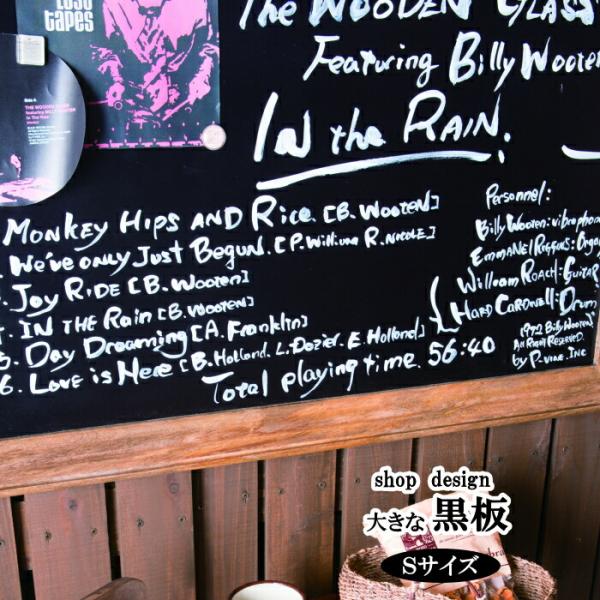 LOST
tapes
The WOODEN GLASS
Featuring Billy Wooten
IN the RAIN.
MONKEY HIPS AND Rice [B. WOOTEN]
We've only Just Begun. [P. William R. NICOLE]
JOY RIDE [B. WOOTEN]
IN THE Rain [B. WOOTEN]
Day Dreaming [A. Franklin]
6. LOVE is HERE [B. Holland. L. Dozier. E. Holland]
Total playing time. 56:40
Personnel:
Billy Wooten: vibraphone
William ROACH: GUITAR
HARD CARDWELL: Drum
[1972 Billy Wooten]
ALL RIGHT RESERVED.
by P-vine. INC
shop design
大きな 黒板
Sサイズ